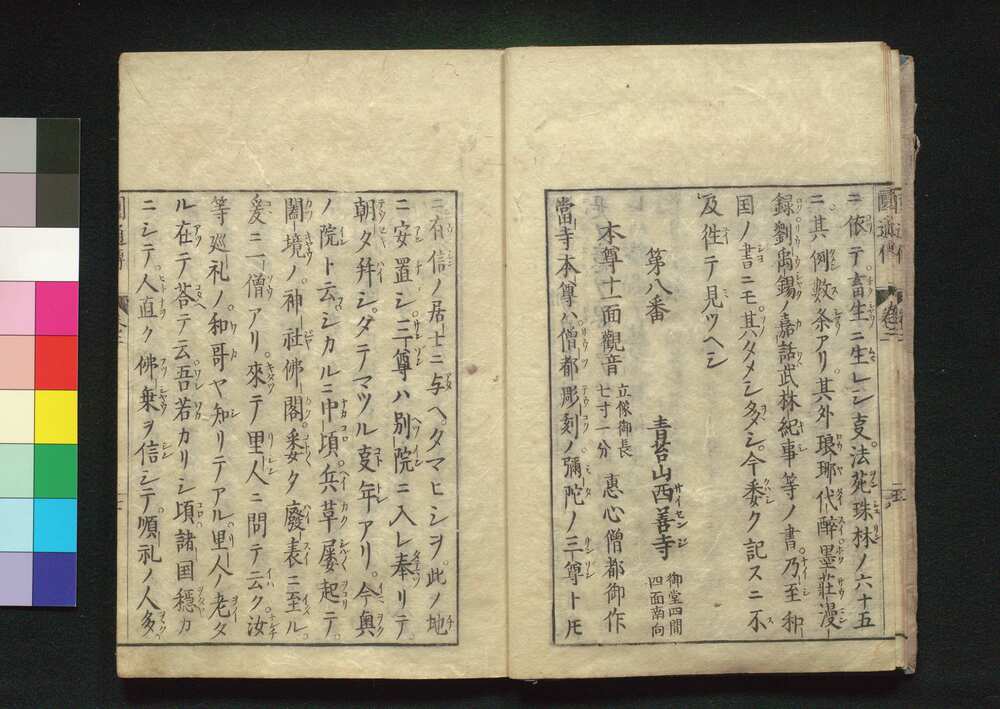 ニ依テ畜生ニ生レシ支法苑珠林ノ六十五
ニ其例数条アリ其外琅琊代醉墨莊漫
録劉禹錫ノ嘉話武林紀事等ノ書乃至和
国ノ書ニモ其タメシ多シ今委ク記スニ不
及徃テ見ツヘシ
第八番 青苔山西善寺 御堂四間四面南向
本尊十一面觀音 立像御長七寸一分 惠心僧都御作
當寺本尊ハ僧都彫刻ノ彌陀ノ三尊トモ
ニ有信ノ居士ニ与ヘタマヒシヲ此ノ地
ニ安置シ三尊ハ別院ニ入レ奉リテ
朝夕拜シタテマツル支年アリ今奥
ノ院ト云シカルニ中頃兵革屡起テ
闔境ノ神社佛閣委ク廢衰ニ至ル
爰ニ一僧アリ來テ里人ニ問テ云ク汝
等巡礼ノ和哥ヤ知リテアル里人ノ老タ
ル在テ荅テ云吾若カリシ頃諸国穏カ
ニシテ人直ク佛乗ヲ信シテ順礼ノ人多